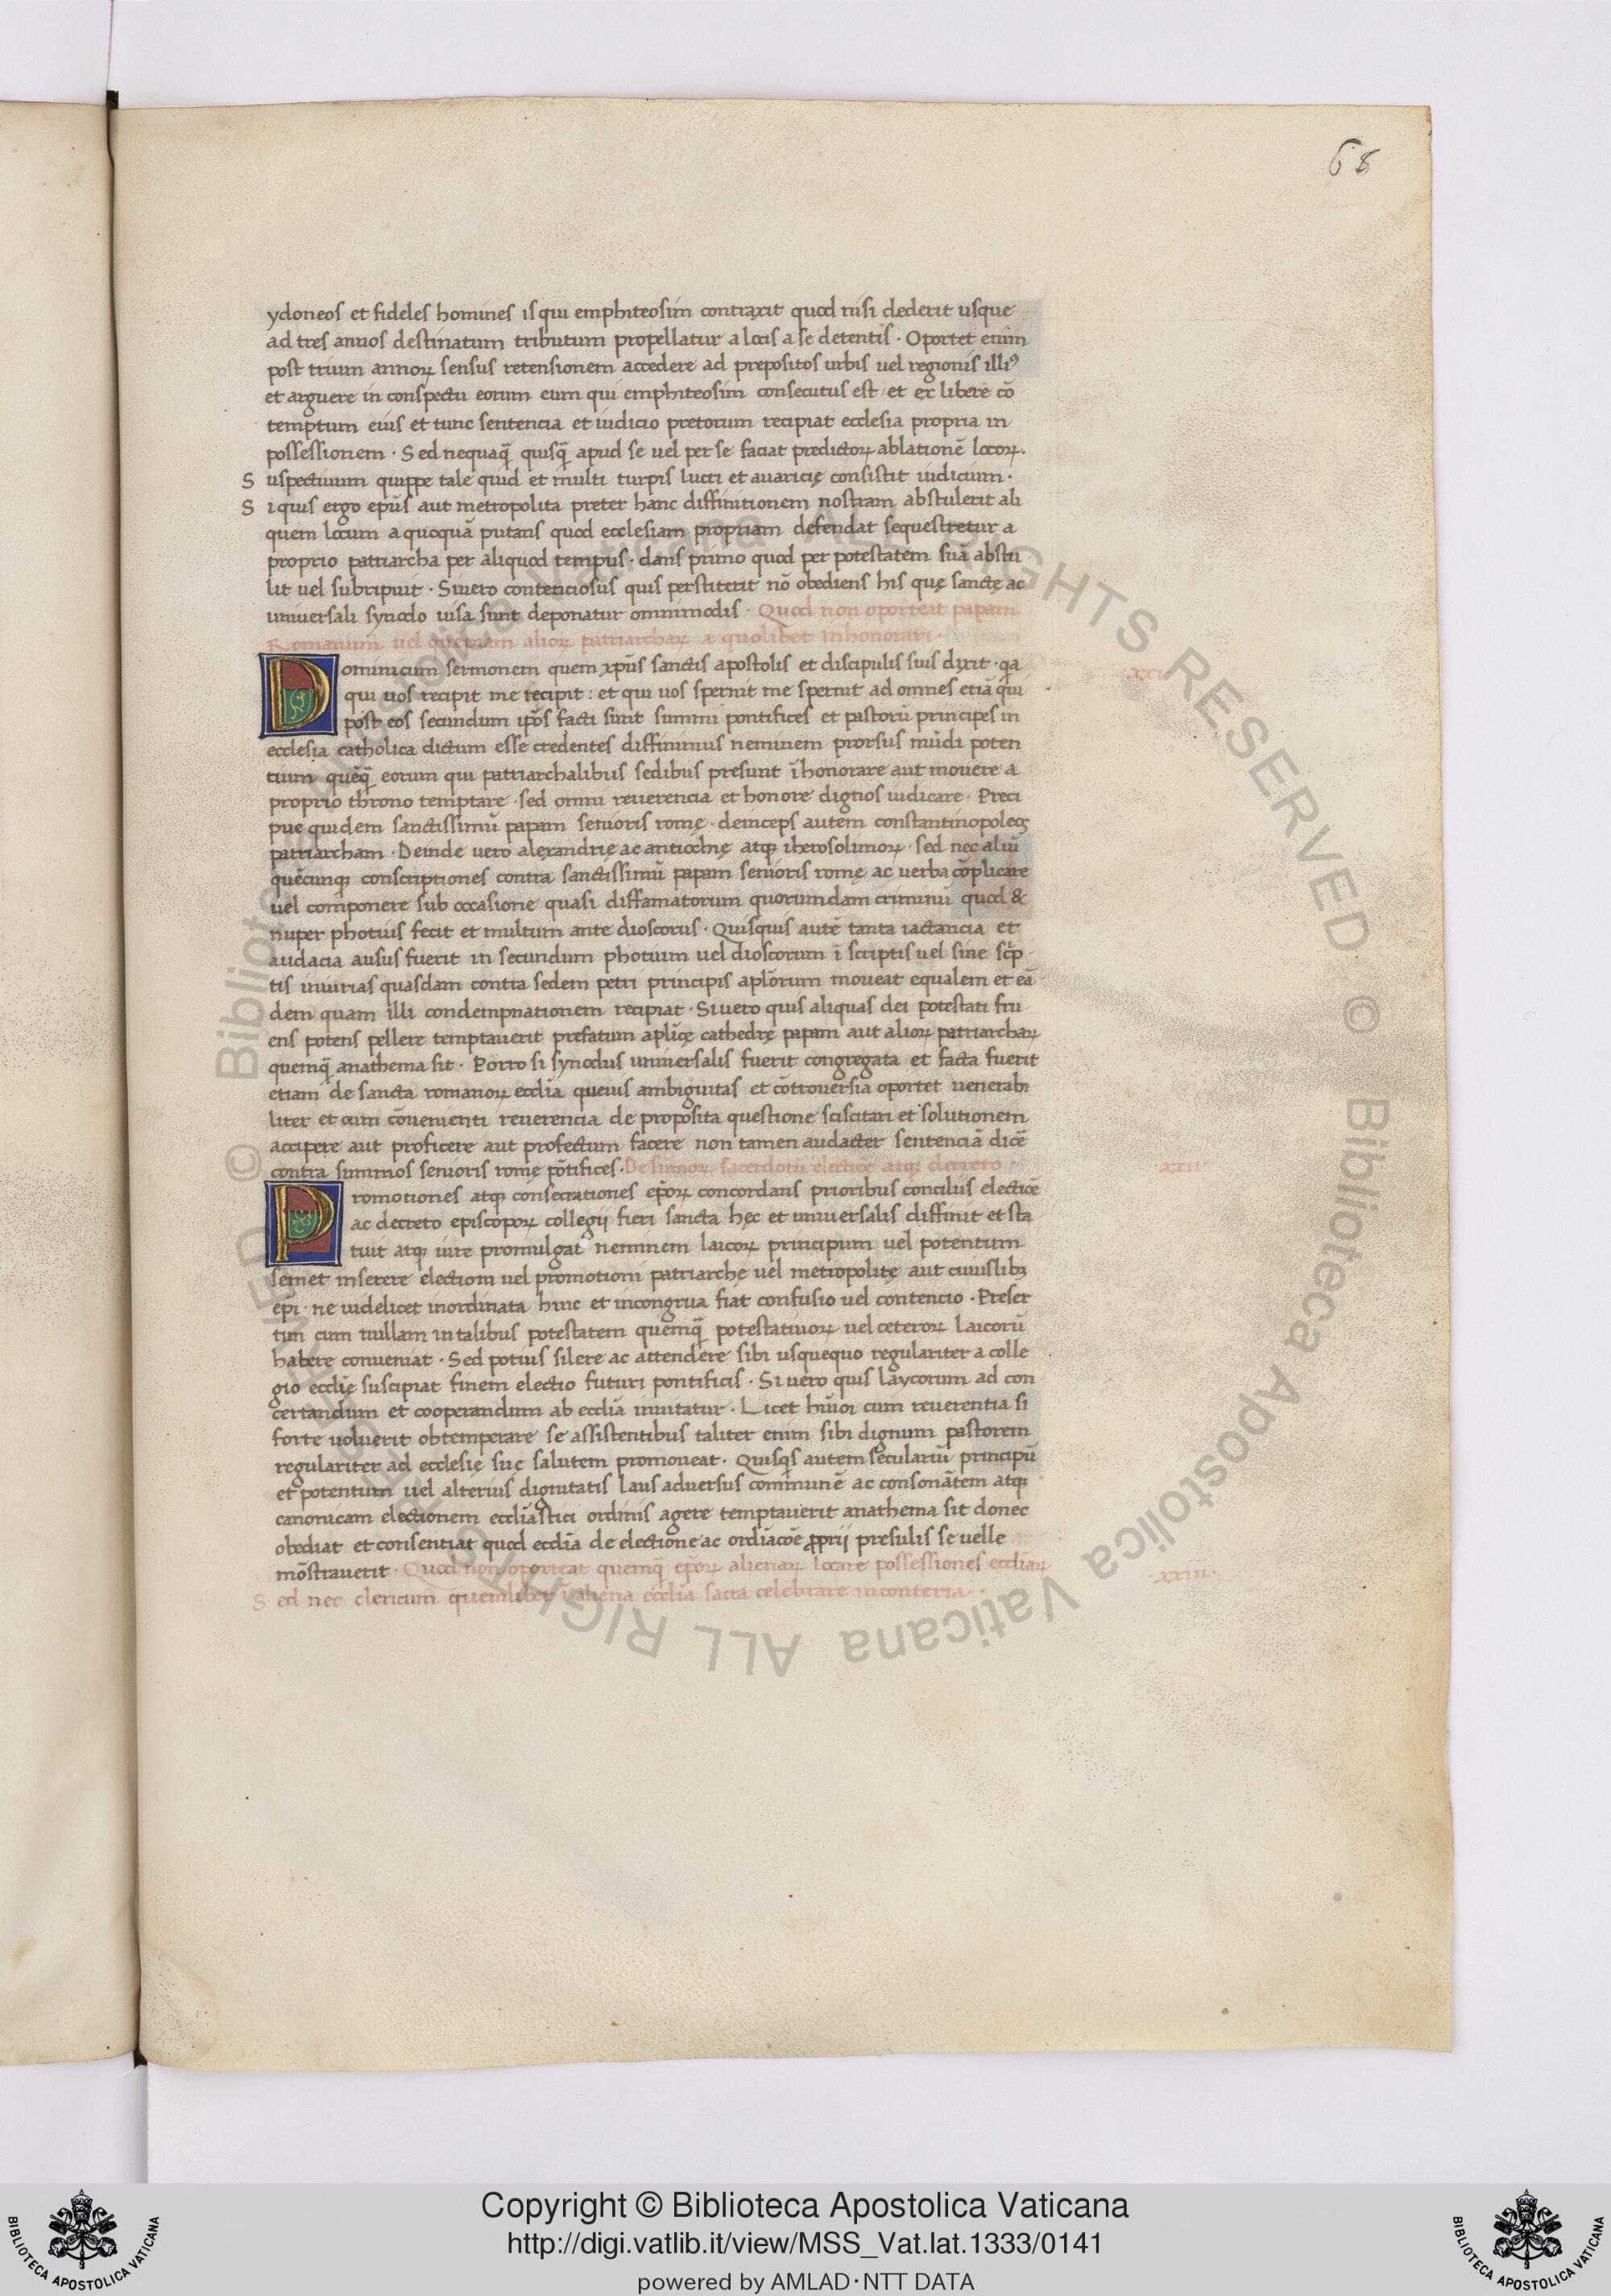 68
ydoneos et fideles homines is qui emphiteosim contraxit quod nisi dederit usque
ad tres annos destinatum tributum propellatur a locis a se detentis · Oportet enim
post trium annoꝝ sensus retensionem accedere ad prepositos urbis uel regionis illiꝰ
et arguere in conspectu eorum eum qui emphiteosim consecutus est et ex libere cō
temptum eius et tunc sentencia et iudicio pretorum recipiat ecclesia propria in
possessionem · Sed nequaq̄ quisq̄ apud se uel per se faciat predictoꝝ ablationē locoꝝ.
S uspectiuum quippe tale quid et multi turpis lucri et auaricię consistit iudicium ·
S i quis ergo ep̄us aut metropolita preter hanc diffinitionem nostram abstulerit ali
quem locum a quoquā putans quod ecclesiam propriam defendat sequestretur a
proprio patriarcha per aliquod tempus · dans primo quod per potestatem suā abstu
lit uel subripuit · Si uero contenciosus quis perstiterit nō obediens his quę sanctę ac
uniuersali synodo uisa sunt deponatur omnimodis · Quod non oporteat papam
Romanum uel quemam alioꝝ patriarchaꝝ a quolibet inhonorari ·
Dominicum sermonem quem xp̄us sanctis apostolis et discipulis suis dixit · qa
qui uos recipit me recipit : et qui uos spernit me spernit ad omnes etiā qui
post eos secundum ip̄os facti sunt summi pontifices et pastorū principes in
ecclesia catholica dictum esse credentes diffinimus neminem prorsus mūdi poten
tium quēq̄ eorum qui patriarchalibus sedibus presunt īhonorare aut mouere a
proprio throno temptare · sed omni reuerencia et honore dignos iudicare · Preci
pue quidem sanctissimū papam senioris romę · deinceps autem constantinopoleos
patriarcham · Deinde uero alexandrię ac antiochię atqꝫ iherosolimoꝝ · sed nec aliū
quēcunqꝫ conscriptiones contra sanctissimū papam senioris romę ac uerba cōplicare
uel componere sub occasione quasi diffamatorum quorumdam criminū quod &
nuper photius fecit et multum ante dioscorus · Quisquis autē tanta iactancia et
audacia ausus fuerit in secundum photium uel dioscorum ī scriptis uel sine sc̄p
tis iniurias quasdam contra sedem petri principis apl̄orum moueat equalem et eā
dem quam illi condempnationem recipiat · Si uero quis aliquas dei potestati fru
ens potens pellere temptauerit prefatum apl̄icę cathedrę papam aut alioꝝ patriarchaꝝ
quemq̄ anathema sit · Porro si synodus uniuersalis fuerit congregata et facta fuerit
etiam de sancta romanoꝝ eccl̄ia queuis ambiguitas et cōtrouersia oportet uenerabi
liter et cum cōuenienti reuerencia de proposita questione sciscitari et solutionem
accipere aut proficere aut profectum facere non tamen audacter sentenciā dicē
contra summos senioris romę pōtifices. De sūmoꝝ sacerdotū electiōe atqꝫ decreto
Promotiones atqꝫ consecrationes ep̄oꝝ concordans prioribus conciliis electiōe
ac decreto episcopoꝝ collegij fieri sancta hęc et uniuersalis diffinit et sta
tuit atqꝫ iure promulgat neminem laicoꝝ principum uel potentum
semet inserere electioni uel promotioni patriarche uel metropolitę aut cuiuslibꝫ
ep̄i · ne uidelicet inordinata hinc et incongrua fiat confusio uel contencio · Preser
tim cum nullam in talibus potestatem quemq̄ potestatiuoꝝ uel ceteroꝝ laicorū
habere conueniat · Sed potius silere ac attendere sibi usquequo regulariter a colle
gio eccl̄ię suscipiat finem electio futuri pontificis · Si uero quis laycorum ad con
certandum et cooperandum ab eccl̄ia inuitatur · Licet hūiōi cum reuerentia si
forte uoluerit obtemperare se assistentibus taliter enim sibi dignum pastorem
regulariter ad ecclesię suę salutem promoueat · Quisqs autem seculariū principū
et potentum uel alterius dignitatis laus aduersus commune ac consonātem atqꝫ
canonicam electionem eccl̄iastici ordinis agere temptauerit anathema sit donec
obediat et consentiat quod eccl̄ia de electione ac ordiācōe ꝓprij presulis se uelle
mōstrauerit · Quod non oporteat quemq̄ ep̄oꝝ alienaꝝ locare possessiones eccl̄iaꝝ
S ed nec clericum quemlibet ī aliena eccl̄ia sacra celebrare
·xxii·
·xxiii·
Copyright © Biblioteca Apostolica Vaticana
http://digi.vatlib.it/view/MSS_Vat.lat.1333/0141
powered by AMLAD·NTT DATA
BIBLIOTECA APOSTOLICA VATICANA
BIBLIOTECA APOSTOLICA VATICANA
© Biblioteca Apostolica Vaticana ALL RIGHTS RESERVED © Biblioteca Apostolica Vaticana ALL RIGHTS RESERVED